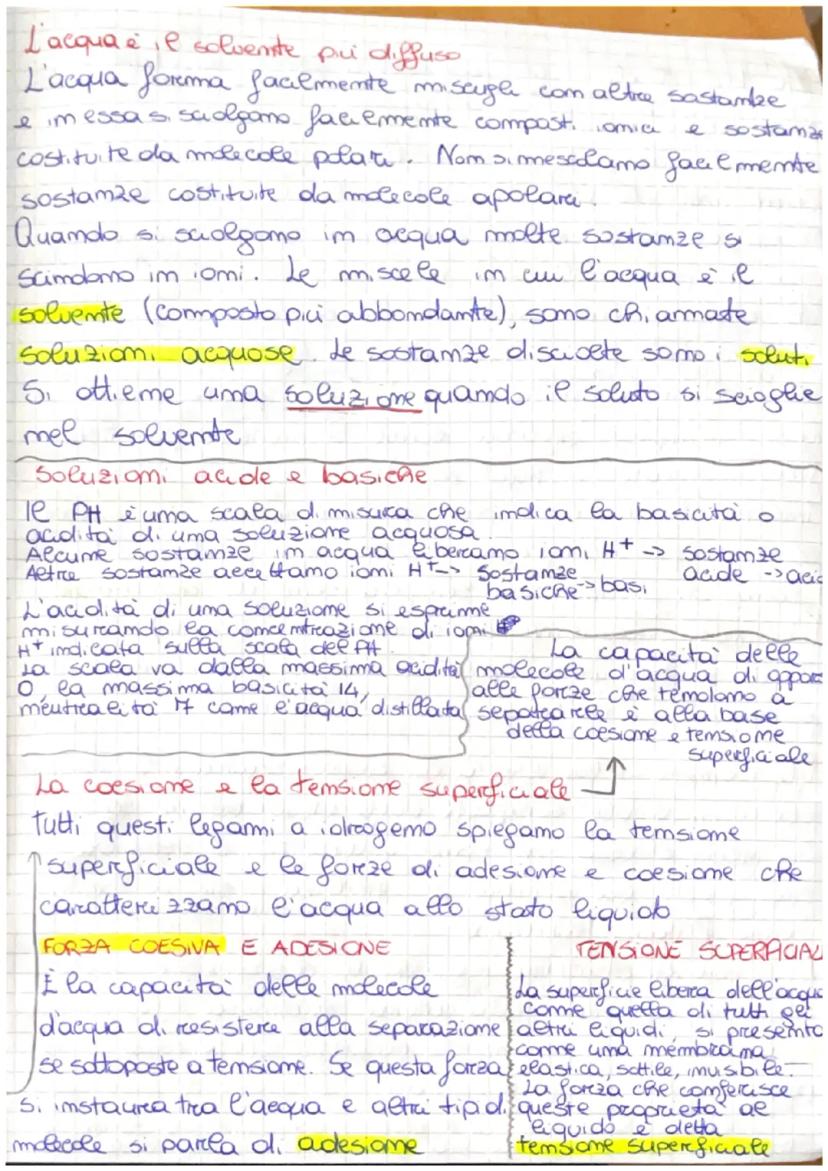 L'acqua è il solvente più diffuso
L'acqua forma facilmente miscugli con altre sostanze
e in essa si sciolgono facilmente composti ionici e sostanze
costituite da molecole polari. Non si mescolano facilmente
sostanze costituite da molecole apolari.
Quando si sciolgono in acqua molte sostanze si
scindono in ioni. Le miscele in cui l'acqua è il
solvente (composto più abbondante), sono chiamate
soluzioni acquose. Le sostanze disciolte sono i soluti
Si ottiene una soluzione quando il soluto si scioglie
nel solvente
Soluzioni acide e basiche
Il PH è una scala di misura che indica la basicità o
acidità di una soluzione acquosa.
Alcune sostanze in acqua liberano ioni H+ -> sostanze
acide -> acid
Altre sostanze accettano ioni H+ -> Sostanze
basiche -> basi
L'acidità di una soluzione si esprime
misurando la concentrazione di ioni
H+ indicata sulla scala del PH.
La scala va dalla massima acidità
0, la massima basicità 14,
neutralità 7 come l'acqua distillata
La capacità delle
molecole d'acqua di oppor
alle forze che tendono a
separarle è alla base
della coesione e tensione
superficiale
La coesione e la tensione superficiale
Tutti questi legami a idrogeno spiegano la tensione
superficiale e le forze di adesione e coesione che
caratterizzano l'acqua allo stato liquido
FORZA COESIVA E ADESIONE
È la capacità delle molecole
d'acqua di resistere alla separazione
se sottoposte a tensione. Se questa forza
si instaura tra l'acqua e altri tipi di
molecole si parla di adesione
TENSIONE SUPERFICIAL
La superficie libera dell'acqua
come quella di tutti gli
altri liquidi, si presenta
come una membrana
elastica, sottile, invisibile.
La forza che conferisce
queste proprietà al
liquido è detta
tensione superficiale